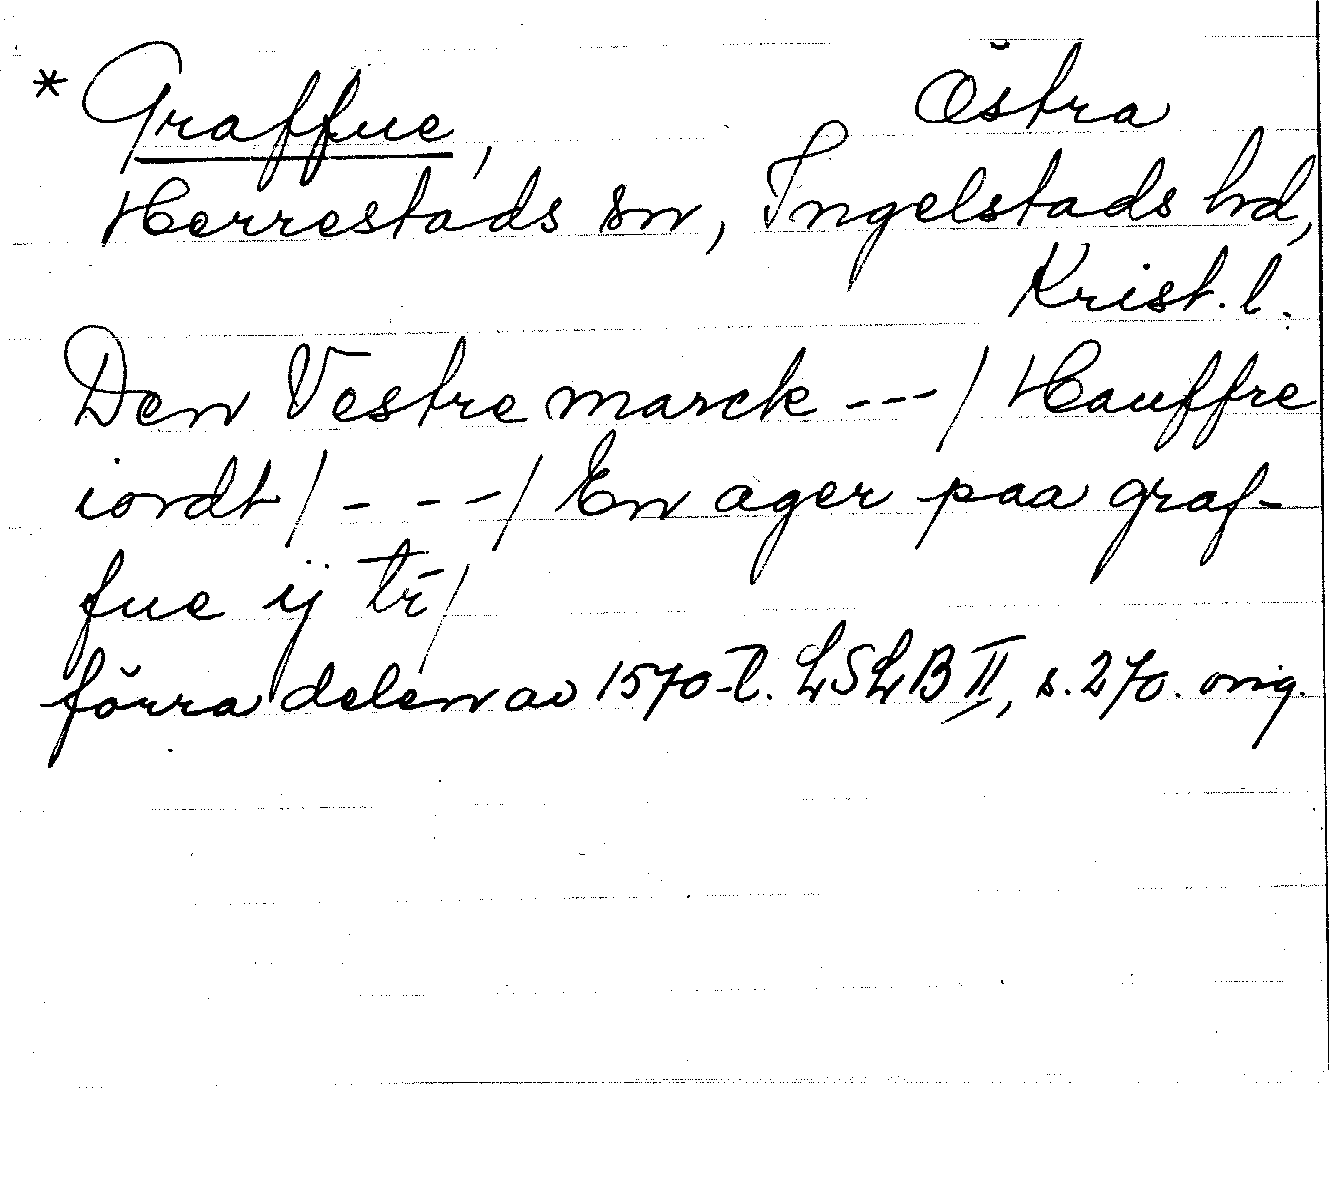 * Graffue, Östra
Herrestads sn, Ingelstads hd,
Krist. l.
Den Vestre marck ---/ Hauffre
iordt/ - - -/ En ager paa graf-
fue ÿ tr̄/
förra delen av 1570-t. LSLB II, s. 270. orig.